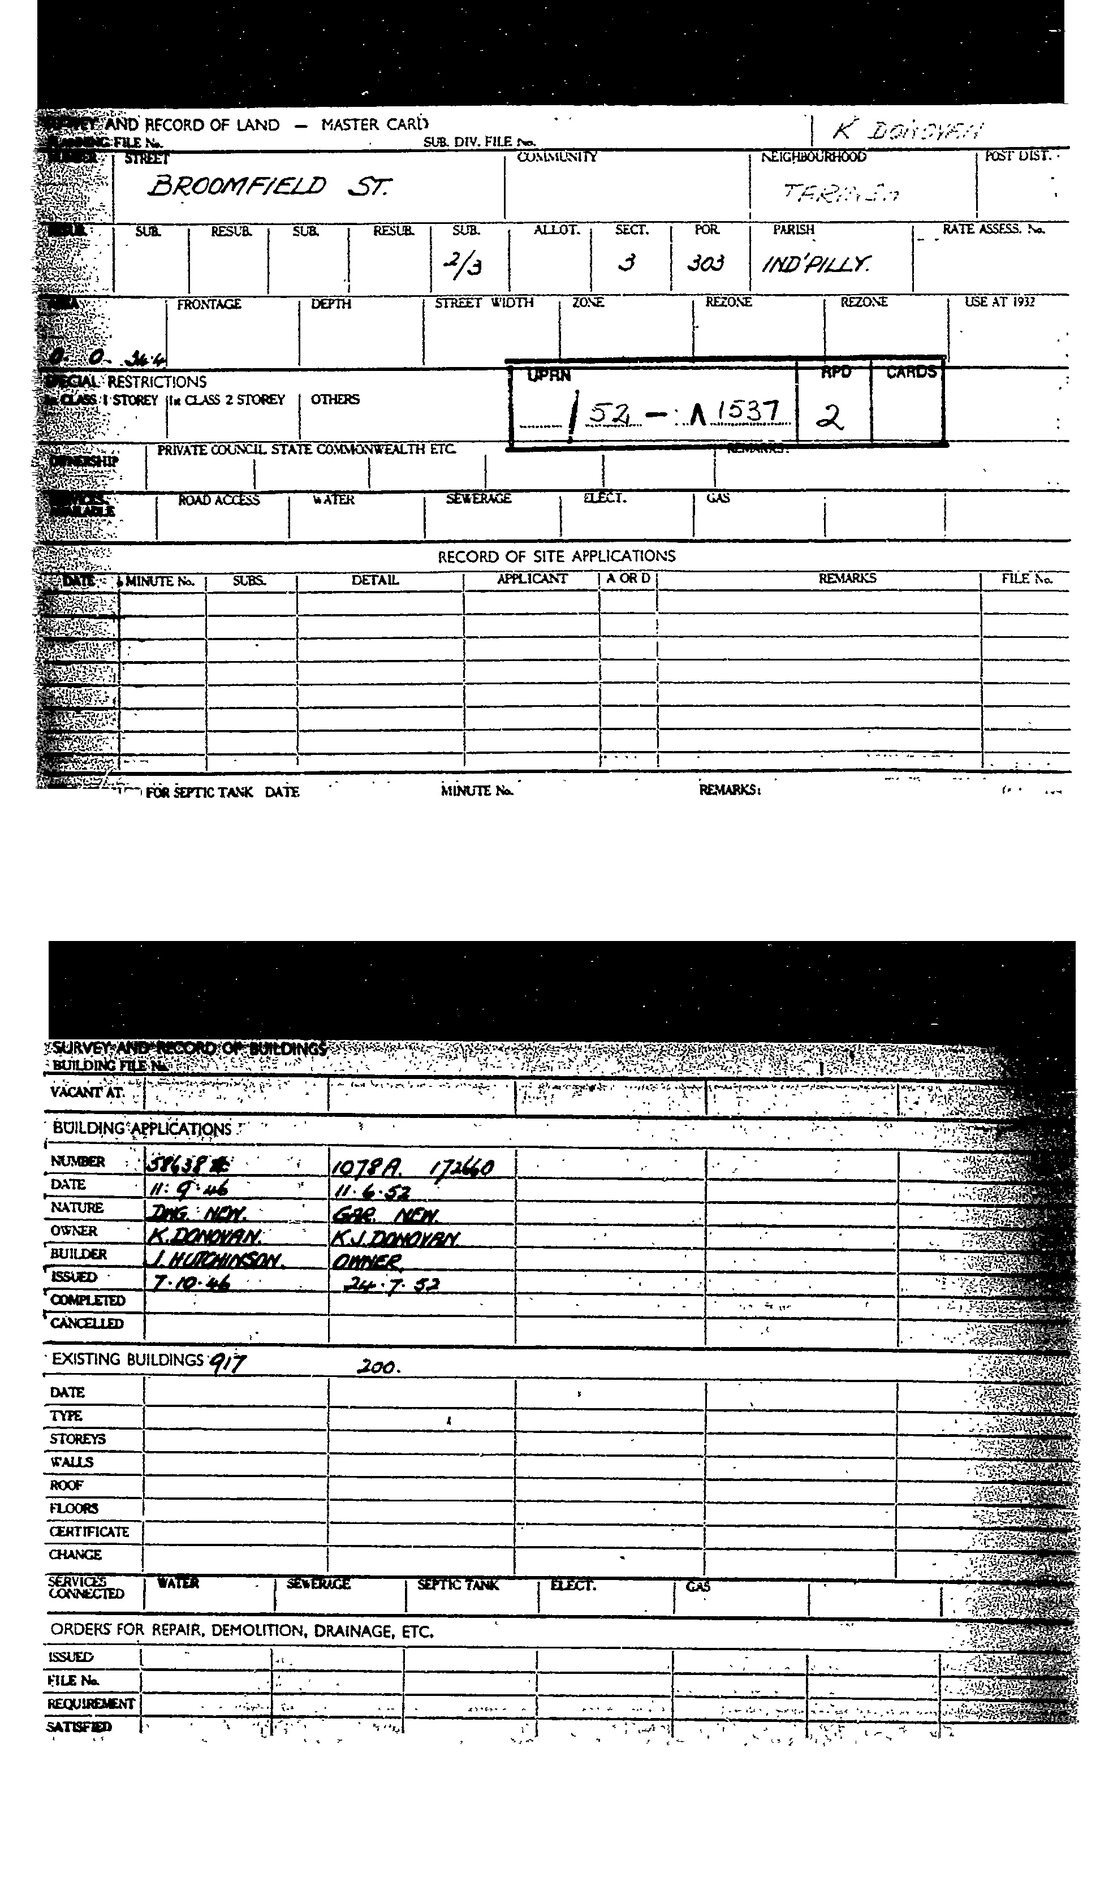 SURVEY AND RECORD OF LAND — MASTER CARD
K DONOVAN
PLANNING FILE No. SUB. DIV. FILE No.
NUMBER STREET COMMUNITY NEIGHBOURHOOD POST DIST.
BROOMFIELD ST.
RESUB. SUB. RESUB. SUB. RESUB. SUB. ALLOT. SECT. POR. PARISH RATE ASSESS. No.
2/3 3 303 IND'PILLY.
AREA FRONTAGE DEPTH STREET WIDTH ZONE REZONE REZONE USE AT 1932
0 0 36.4
SPECIAL RESTRICTIONS
1st CLASS 1 STOREY 1st CLASS 2 STOREY OTHERS
UPRN RPD CARDS
/ 52 — 1537 2
OWNERSHIP PRIVATE COUNCIL STATE COMMONWEALTH ETC. REMARKS:
SERVICES AVAILABLE ROAD ACCESS WATER SEWERAGE ELECT. GAS
RECORD OF SITE APPLICATIONS
DATE MINUTE No. SUBS. DETAIL APPLICANT A OR D REMARKS FILE No.
FOR SEPTIC TANK DATE MINUTE No. REMARKS:
SURVEY AND RECORD OF BUILDINGS
BUILDING FILE No.
VACANT AT.
BUILDING APPLICATIONS
NUMBER 58638 1078A. 172660
DATE 11.9.46 11.6.52
NATURE DWG. NEW. GAR. NEW.
OWNER K.DONOVAN. K.J.DONOVAN.
BUILDER J. HUTCHINSON. OWNER.
ISSUED 7.10.46 24.7.52
COMPLETED
CANCELLED
EXISTING BUILDINGS 917 200.
DATE
TYPE
STOREYS
WALLS
ROOF
FLOORS
CERTIFICATE
CHANGE
SERVICES CONNECTED WATER SEWERAGE SEPTIC TANK ELECT. GAS
ORDERS FOR REPAIR, DEMOLITION, DRAINAGE, ETC.
ISSUED
FILE No.
REQUIREMENT
SATISFIED